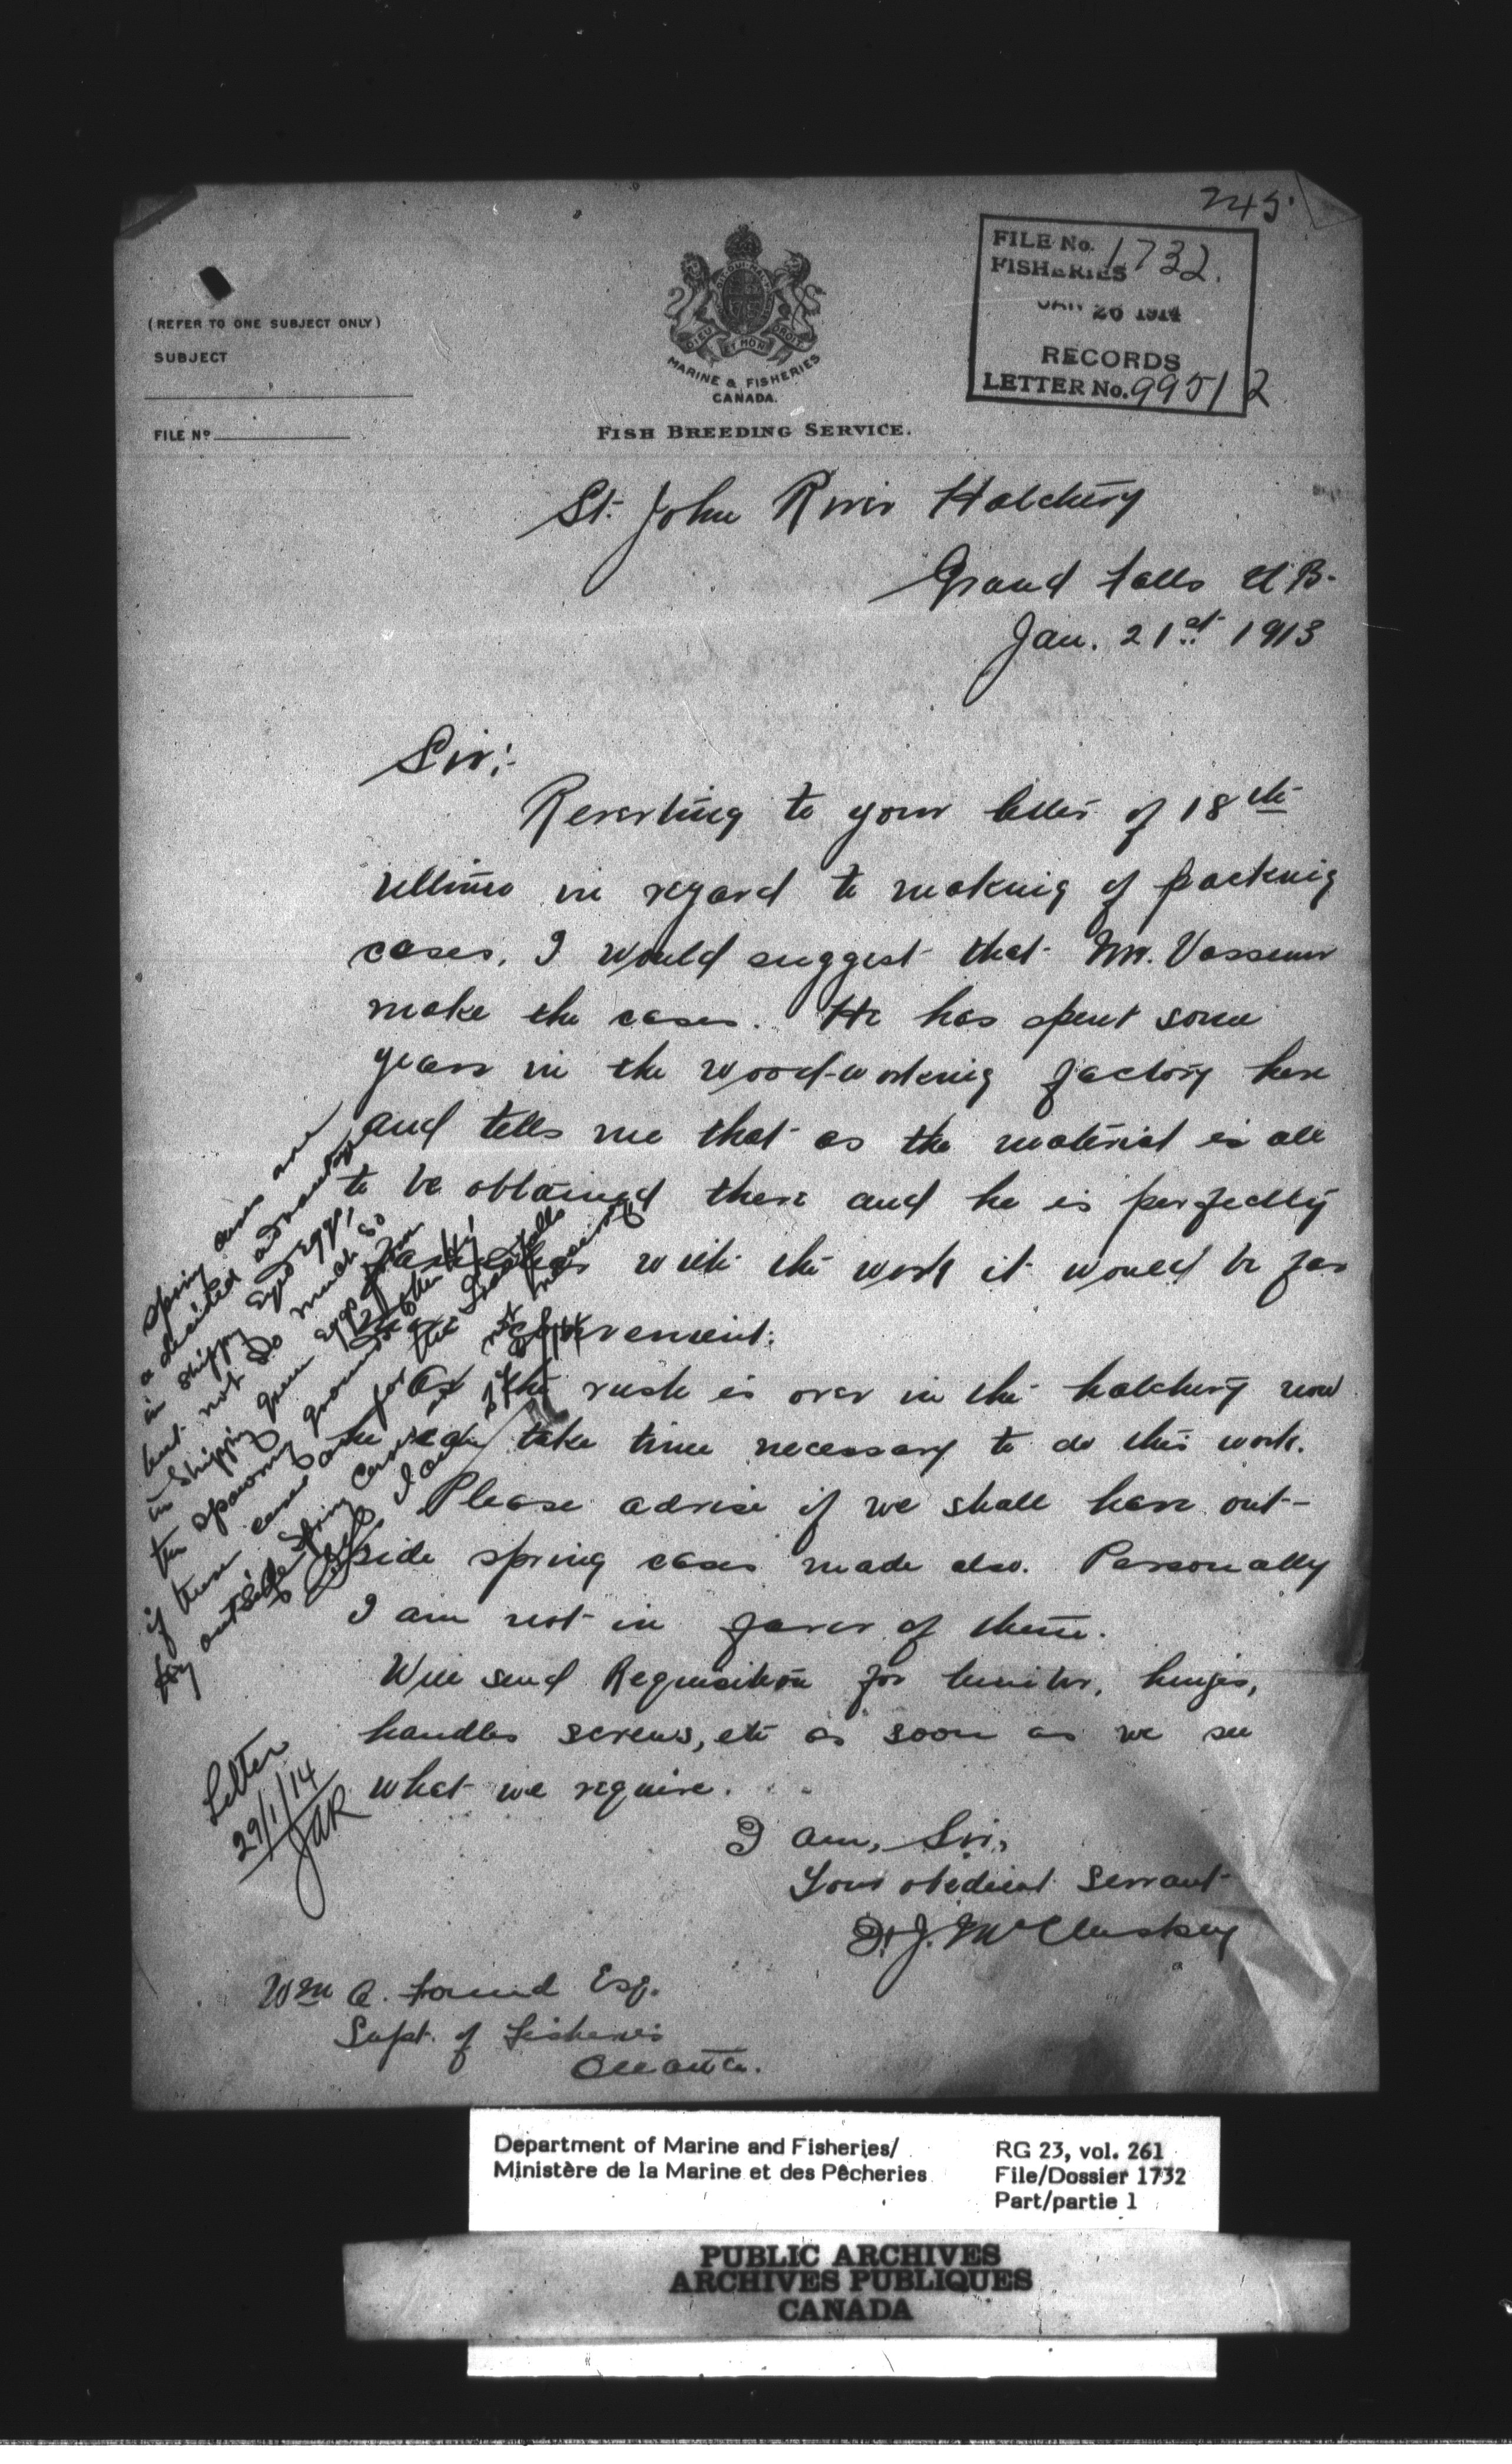 245.
FILE No. 1732.
FISHERIES
JAN 26 1914
RECORDS
LETTER No. 99512
(REFER TO ONE SUBJECT ONLY)
SUBJECT
FILE No
DIEU ET MON DROIT
MARINE & FISHERIES
CANADA.
FISH BREEDING SERVICE.
St. John River Hatchery
Grand Falls N.B.
Jan. 21st 1913
Sir:-
Reverting to your letter of 18th
ultimo in regard to making of packing
cases, I would suggest that Mr. Vasseur
make the cases. He has spent some
years in the wood-working factory here
and tells me that as the material is all
to be obtained there and he is perfectly
familiar with the work it would be far
convenient.
As the rush is over in the hatchery now
he can take time necessary to do this work.
Please advise if we shall have out-
side spring cases made also. Personally
I am not in favor of them.
Will send Requisition for lumber, hinges,
handles screws, etc as soon as we see
what we require.
I am, Sir,
Your obedient Servant
J. McCluskey
Wm A. Found Esq.
Supt. of Fisheries
Ottawa.
spring cases are
a decided advantage
in shipping eyed eggs,
but not so much so
in shipping green eggs from
the spawning grounds
if these cases are for the Grand Falls
outside spring cases not necessary
Letter
29/1/14
JAR
Department of Marine and Fisheries/
Ministère de la Marine et des Pêcheries
RG 23, vol. 261
File/Dossier 1732
Part/partie 1
PUBLIC ARCHIVES
ARCHIVES PUBLIQUES
CANADA